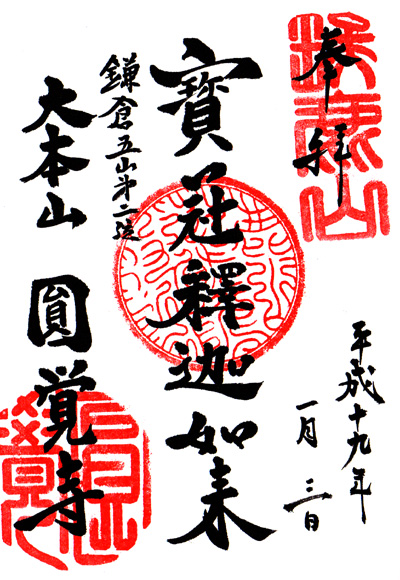 奉拝
平成十九年
一月三日
寶冠釋迦如来
鎌倉五山第二位
大本山 圓覚寺
瑞鹿山